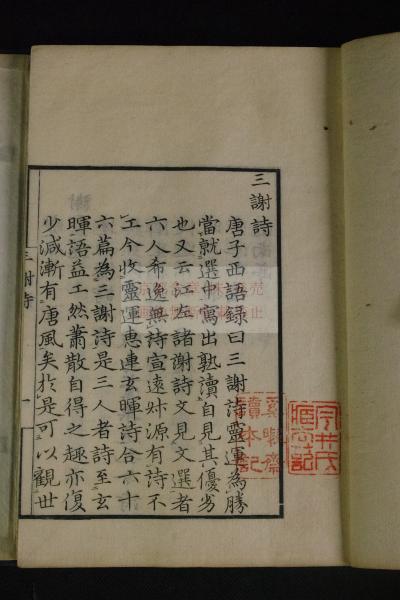 三謝詩
唐子西語錄曰三謝詩靈運為勝
當就選中寫出熟讀自見其優劣
也又云江左諸謝詩文見文選者
六人希逸無詩宣遠叔源有詩不
工今收靈運惠連玄暉詩合六十
六篇為三謝詩是三人者詩至玄
暉語益工然蕭散自得之趣亦復
少減漸有唐風矣於是可以觀世
三謝詩
一